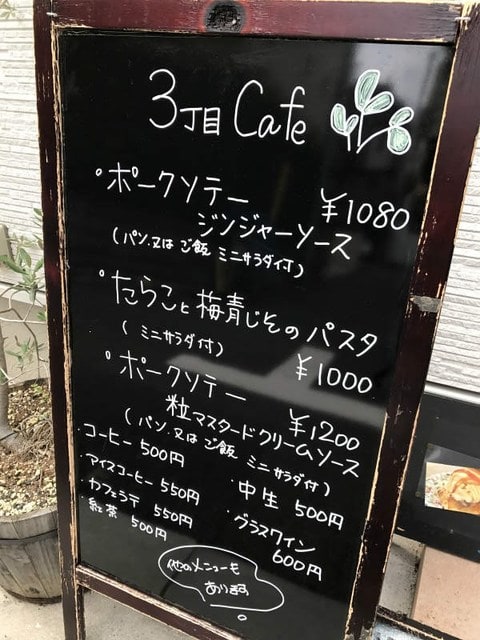 3丁目 Cafe
・ポークソテー ¥1080
ジンジャーソース
(パン.又は ご飯 ミニサラダ付)
・たらこと梅青じそのパスタ
(ミニサラダ付) ¥1000
・ポークソテー ¥1200
粒マスタードクリームソース
(パン.又は ご飯 ミニサラダ付)
・コーヒー 500円
・アイスコーヒー 550円
・カフェラテ 550円
・紅茶 500円
・中生 500円
・グラスワイン
600円
他のメニューも
あります